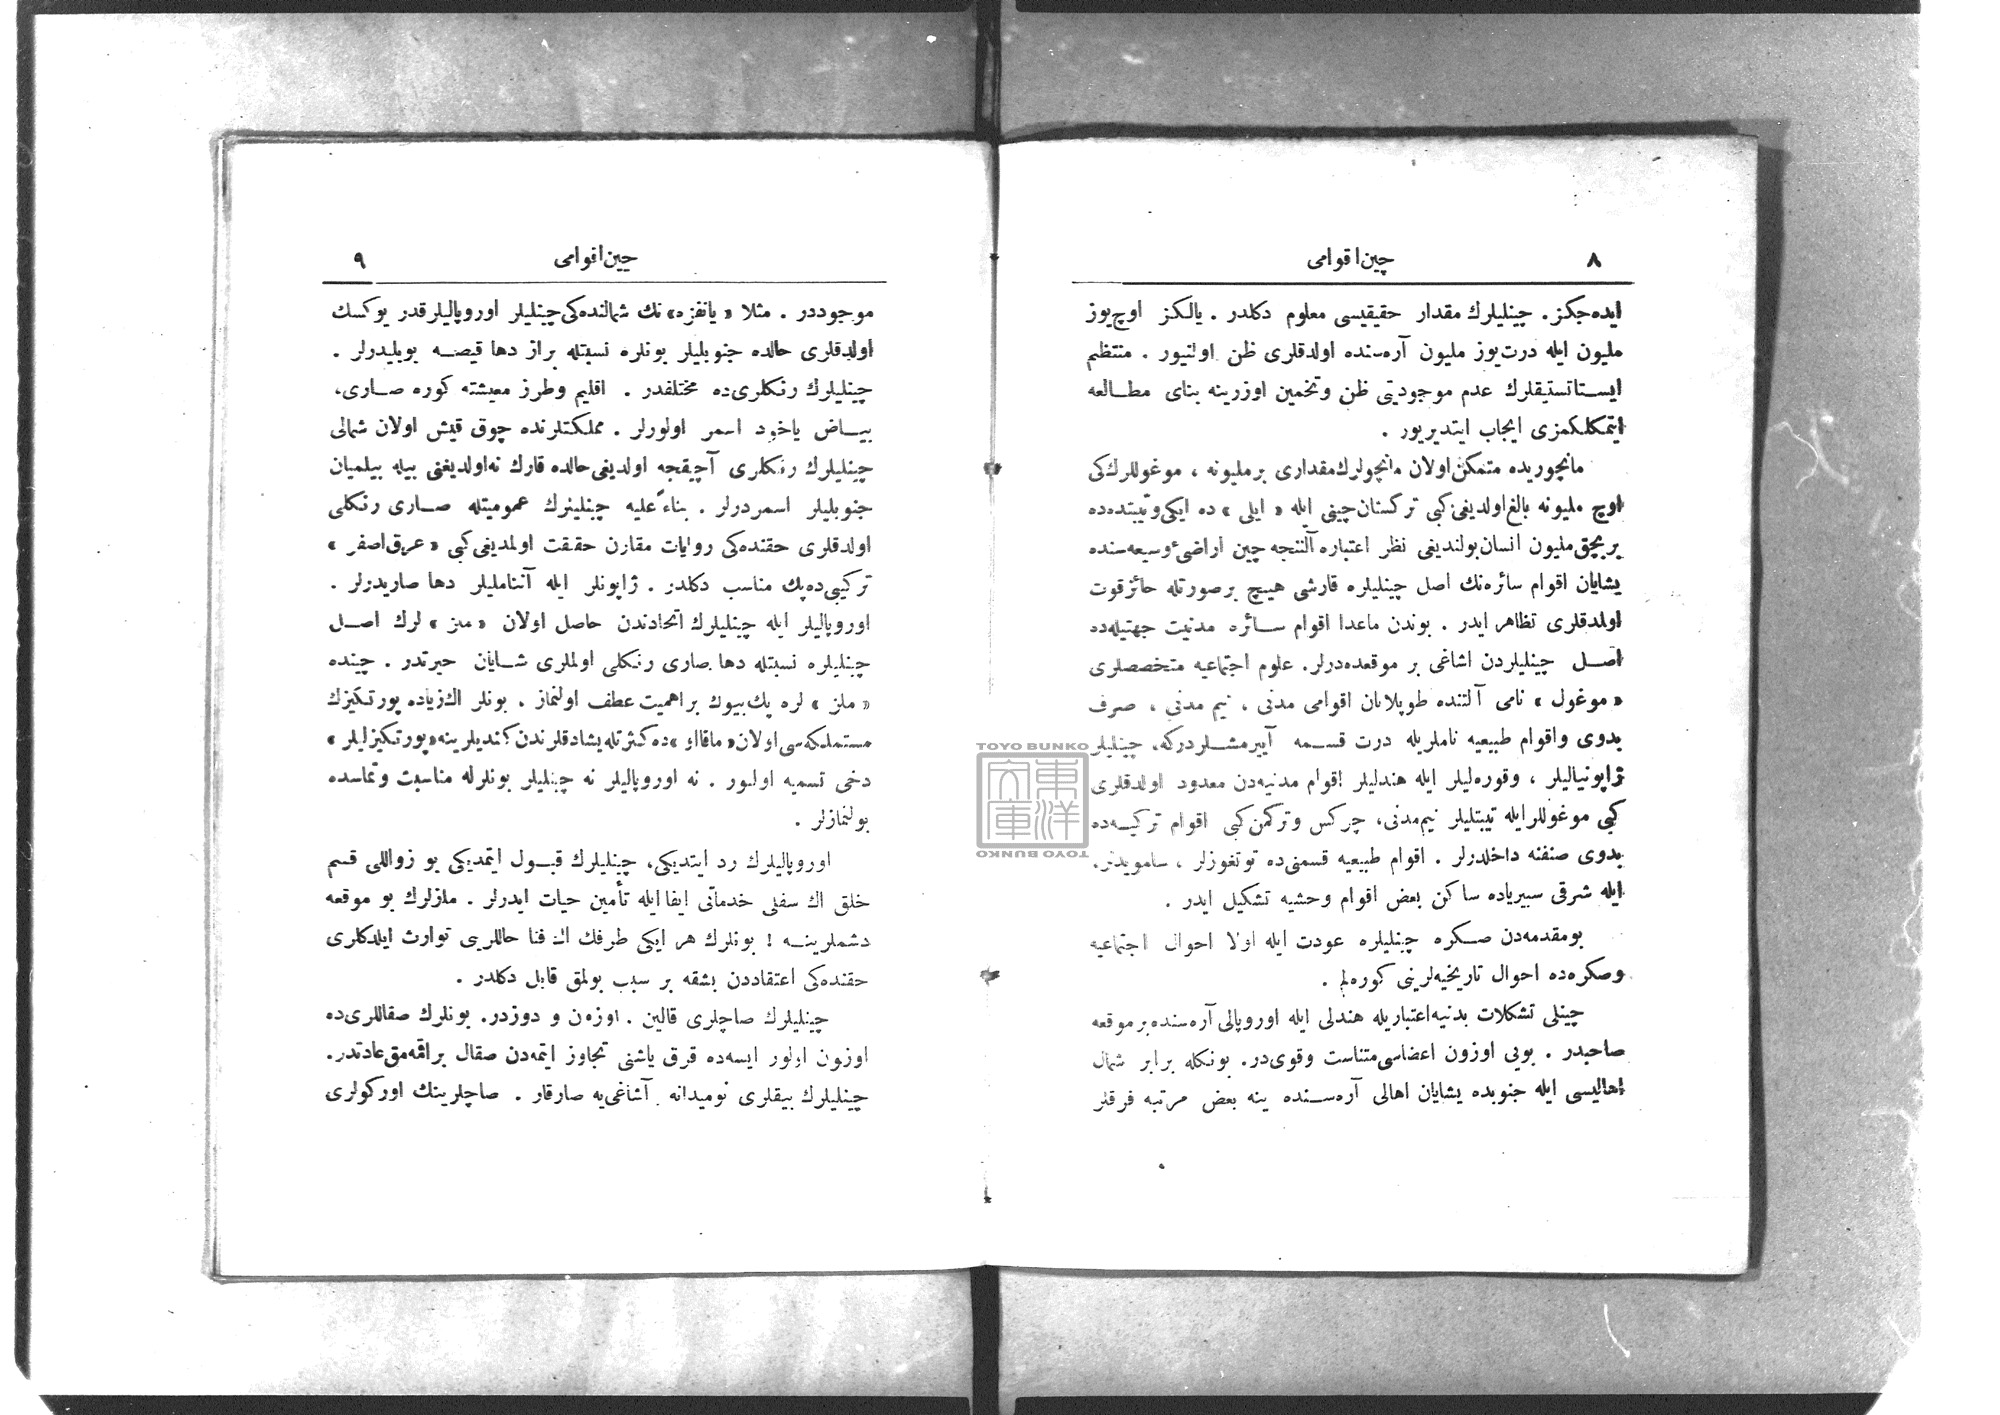 ٨
چین اقوامی
ایده‌جکز. چینلیلرك مقدار حقیقیسی معلوم دکلدر. یالکز اوچ یوز
ملیون ایله درت یوز ملیون آره‌سنده اولدقلری ظن اولنیور. منتظم
ایستاتستیقلرك عدم موجودیتی ظن وتخمین اوزرینه بنای مطالعه
ایتمکلکمزی ایجاب ایتدیریور.
مانچوریده متمکن اولان مانچولرك مقداری بر ملیونه، موغوللرك کی
اوچ ملیونه بالغ اولدیغی کبی ترکستان چینی ایله «ایلی» ده ایکی وتیبتده‌ده
بربچق ملیون انسان بولندیغی نظر اعتباره آلنجه چین اراضیٔ وسیعه‌سنده
یشایان اقوام سائره‌نك اصل چینلیلره قارشی هیچ برصورتله حائز قوت
اولمدقلری تظاهر ایدر. بوندن ماعدا اقوام سائره مدنیت جهتیله‌ده
اصل چینلیلردن اشاغی بر موقعده‌درلر. علوم اجتماعیه متخصصلری
«موغول» نامی آلتنده طوپلانان اقوامی مدنی، نیم مدنی، صرف
بدوی واقوام طبیعیه ناملریله درت قسمه آییرمشلردرکه، چینلیلر
ژاپونیالیلر، وقوره‌لیلر ایله هندلیلر اقوام مدنیه‌دن معدود اولدقلری
کبی موغوللر ایله تیبتلیلر نیم مدنی، چرکس وترکمن کبی اقوام ترکیه‌ده
بدوی صنفنه داخلدرلر. اقوام طبیعیه قسمنی‌ده تونغوزلر، سامویدلر.
ایله شرقی سبیریاده ساکن بعض اقوام وحشیه تشکیل ایدر.
بومقدمه‌دن صکره چینلیلره عودت ایله اولا احوال اجتماعیه
وصکره‌ده احوال تاریخیه‌لرینی کوره‌لم.
چینلی تشکلات بدنیه اعتباریله هندلی ایله اوروپالی آره‌سنده بر موقعه
صاحبدر. بویی اوزون اعضاسی متناسب وقوی‌در. بونکله برابر شمال
اهالیسی ایله جنوبده یشایان اهالی آره‌سنده ینه بعض مرتبه فرقلر
چین اقوامی
٩
موجوددر. مثلا «یانغزه» نك شمالنده‌کی چینلیلر اوروپالیلر قدر یوکسك
اولدقلری حالده جنوبلیلر بونلره نسبتله براز دها قیصه بویلیدرلر.
چینلیلرك رنکلری‌ده مختلفدر. اقلیم وطرز معیشته کوره صاری،
بیاض یاخود اسمر اولورلر. مملکتلرنده چوق قیش اولان شمالی
چینلیلرك رنکلری آچیقجه اولدیغی حالده قارك نه اولدیغنی بیله بیلمیان
جنوبلیلر اسمردرلر. بناءً علیه چینلیلرك عمومیتله صاری رنکلی
اولدقلری حقنده‌کی روایات مقارن حقیقت اولمدیغی کبی «عرق اصفر»
ترکیبی‌ده پك مناسب دکلدر. ژاپونلر ایله آننامیلیلر دها صاریدرلر.
اوروپالیلر ایله چینلیلرك اتحادندن حاصل اولان «ملز» لرك اصل
چینلیلره نسبتله دها صاری رنکلی اولملری شایان حیرتدر. چینده
«ملز» لره پك بیوك بر اهمیت عطف اولنماز. بونلر اك زیاده پورتکیزك
مستملکه‌سی اولان «ماقااو» ده کثرتله یشادقلرندن کندیلرینه «پورتکیزلیلر»
دخی تسمیه اولنور. نه اوروپالیلر نه چینلیلر بونلرله مناسبت وتماسده
بولنمازلر.
اوروپالیلرك رد ایتدیکی، چینلیلرك قبول ایتمدیکی بو زواللی قسم
خلق اك سفلی خدماتی ایفا ایله تأمین حیات ایدرلر. ملزلرك بو موقعه
دشملرینه! بونلرك هر ایکی طرفك اك فنا حاللرینی توارث ایلدکلری
حقنده‌کی اعتقاددن بشقه بر سبب بولمق قابل دکلدر.
چینلیلرك صاچلری قالین. اوزون و دوزدر. بونلرك صقاللری‌ده
اوزون اولور ایسه‌ده قرق یاشنی تجاوز ایتمه‌دن صقال براقمه‌مق عادتدر.
چینلیلرك بیقلری نومیدانه آشاغی‌یه صارقار. صاچلرینك اورکولری
TOYO BUNKO
東洋文庫
TOYO BUNKO